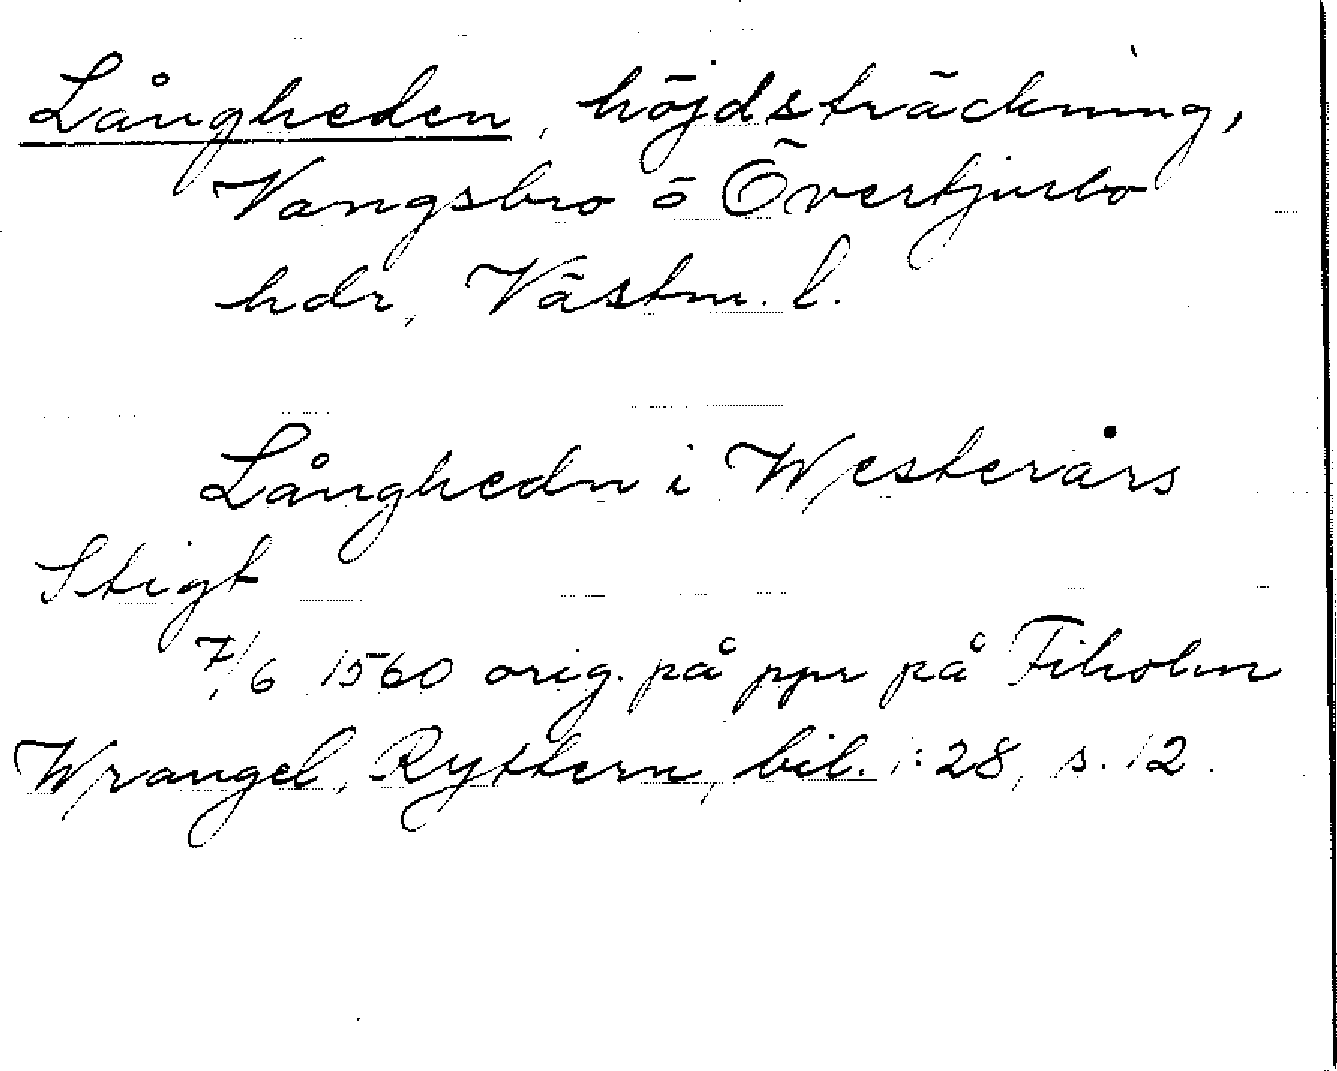 Långheden, höjdsträckning,
Vangsbro ö Övertjurbo
hdr, Västm. l.
Långhedn i Westerårs
Stigt
7/6 1560 orig. på ppr på Fiholm
Wrangel, Ryttern, bil. 1:28, s. 12.